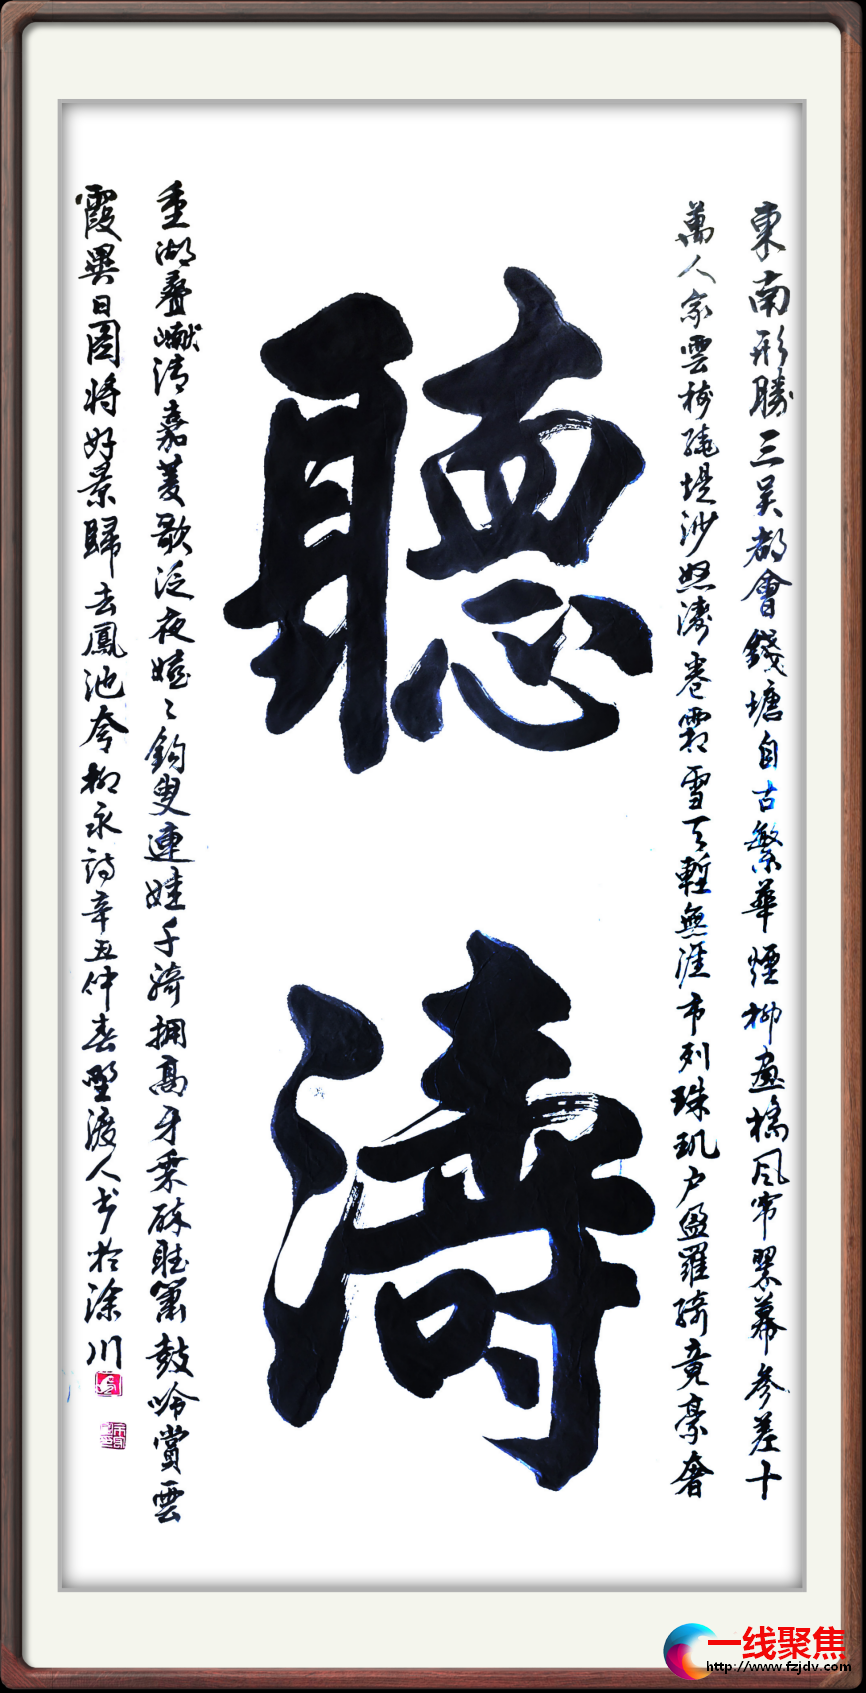 聽濤
東南形勝三吴都會錢塘自古繁華煙柳畫橋風帘翠幕參差十
萬人家雲樹繞堤沙怒濤卷霜雪天塹無涯市列珠玑户盈羅綺竟豪奢
重湖疊巘清嘉菱歌泛夜嬉〻釣叟連娃千騎擁高牙乘醉聽簫鼓吟賞雲
霞異日圖将好景歸去鳳池夸柳永詩辛丑仲春野渡人书於涂川
一线聚焦
http://www.fzjdv.com